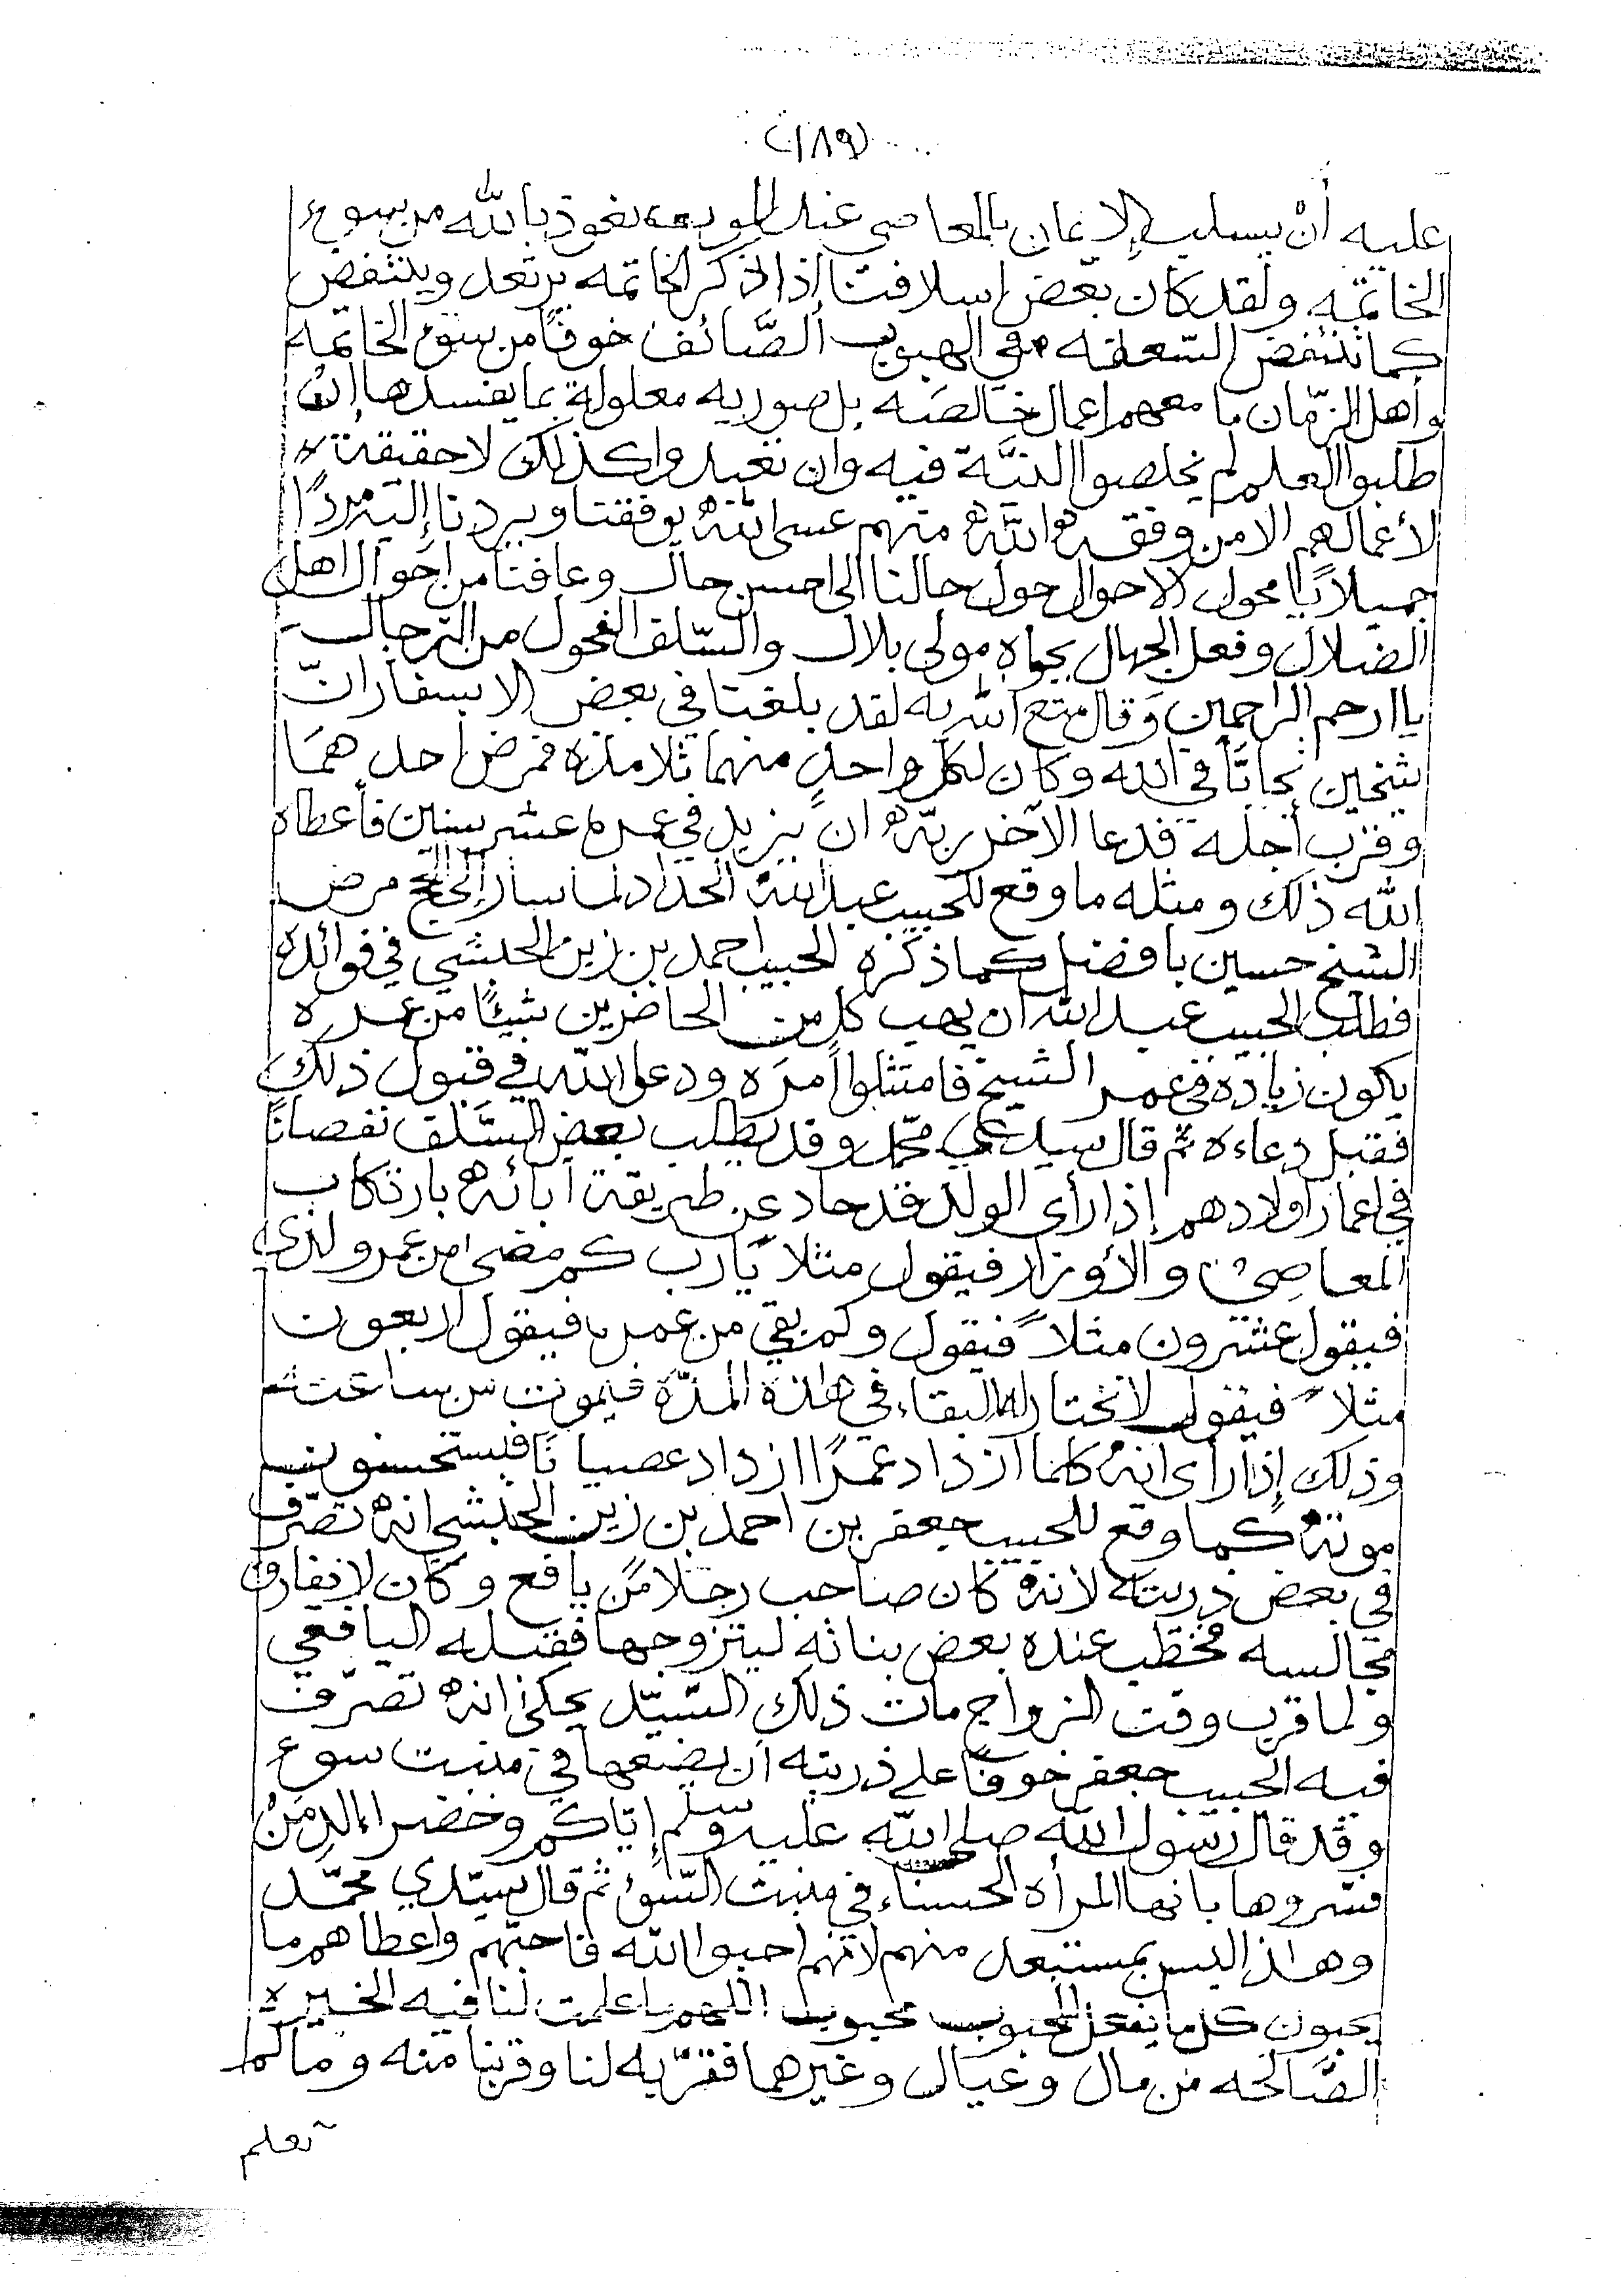 (١٨٩)
عليه أنْ يسلب الإيمان بالمعاصي عند الموت نعوذ بالله من سوء
الخاتمة ولقد كان بعض اسلافنا إذا ذكر الخاتمه يرتعد وينتفض
كما تنتفض السّعفه في الهبوب الصَّائف خوفًا من سوء الخاتمه
وأهل الزّمان ما معهم اعمال خالصَه بل صوريه معلولةٍ بما يفسدها إنْ
طلبوا العلم لم يخلصوا النيَّة فيه وان تعبدوا كذلك لا حقيقة
لأعمالهم الا من وفقه الله منهم عسى الله يوفقنا ويردنا إليه مردًا
جميلاً يا محول الاحوال حول حالنا الى احسن حال وعافنا من احوال اهل
الضلال وفعل الجهال بجاه مولى بلال والسّلف الفحول من الرجال
يا ارحم الراحمين وَقال متع الله به لقد بلغنا في بعض الاسفار انّ
شيخين تحابَّا في الله وكان لكل واحدٍ منهما تلامذه فمرض احدهمَا
وقرب أجله فدعا الآخر ربّه ان يزيد في عمره عشر سنين فأعطاه
الله ذلك ومثله ما وقع للحبيب عبدالله الحداد لما سار إلى الحج مرض
الشيخ حسين بافضل كما ذكره الحبيب احمد بن زين الحبشي في فوائده
فطلب الحبيب عبدالله ان يهب كل من الحاضرين شيئًا من عمره
يكون زيادة في عمر الشيخ فامتثلوا أمرَه ودعوا الله في قبول ذلك
فقبل دعاءه ثم قال سيدي محمّد وقد يطلب بعض السَّلف نقصانًا
في اعمار اولادهم إذا رأى الولد قد حاد عن طريقة آبائه بارتكاب
المعاصِي والأوزار فيقول مثلاً يَارب كم مضى من عمر ولدي
فيقول عشرون مثلاً فيقول وكم بقي من عمره فيقول اربعون
مثلاً فيقول لا نختار له البقاء في هذه المدّة فيموت من ساعته
وذلك إذا رأى انه كلما ازداد عمرًا ازداد عصيانًا فيستحسنون
موته كما وقع للحبيب جعفر بن احمد بن زين الحبشي انه تصرّف
في بعض ذريته لأنه كان صاحب رجلا من يافع وكان لا يفارق
مجالسه فخطب عنده بعض بناته ليتزوجها فقبله اليافعي
ولما قرب وقت الزواج مات ذلك السّيّد يحكى انه تصرّف
فيه الحبيب جعفر خوفًا على ذريته ان يضعها في منبت سوء
وقد قال رسول الله صلى الله عليه وسلم إيّاكم وخضراء الدِمَنْ
فسّروها بانها المرأه الحسناء في منبت السّوء ثم قال سيّدي محمّد
وهذا ليس بمستبعد منهم لانّهم احبوا الله فاحبّهم واعطاهم ما
يحبون كل ما يفعل المحبوب محبوب اللهم ما علمت لنا فيه الخيره
الصَّالحه من مال وعيال وغيرهما فقرّبه لنا وقربنا منه وما لم
تعلم